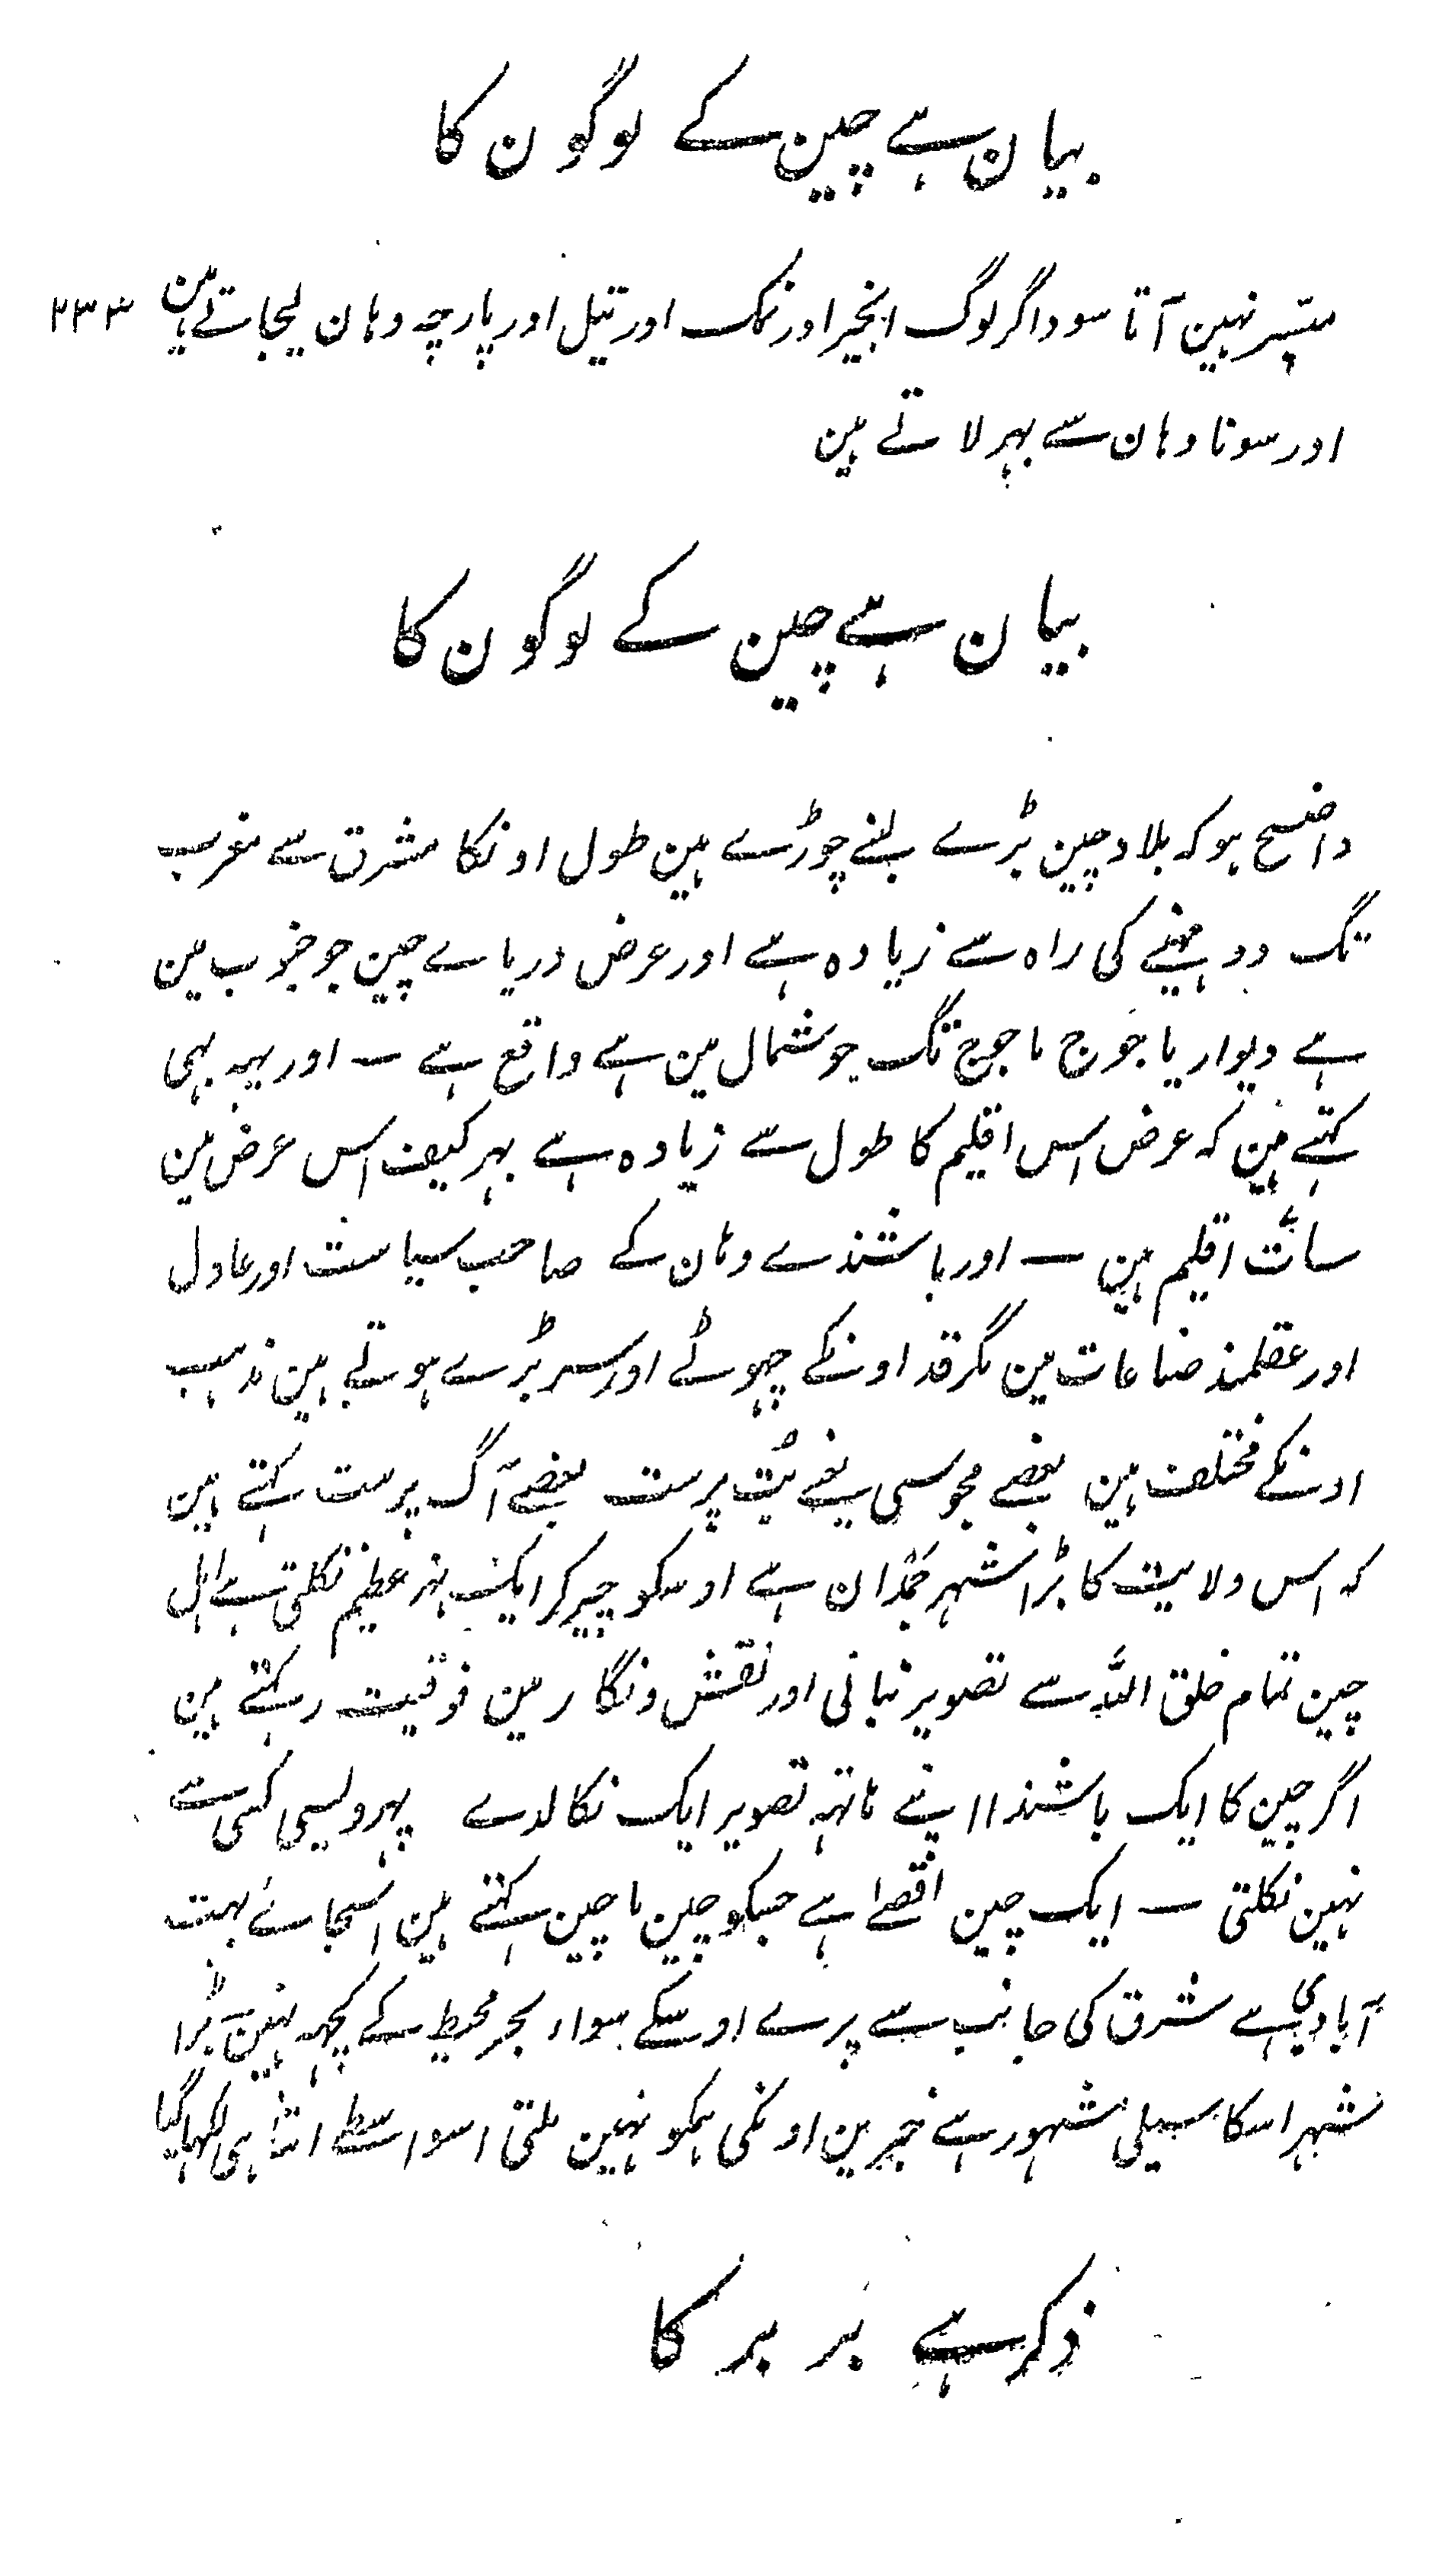 بیان ہے چین کے لوگون کا
میسر نہین آتا سوداگر لوگ انجیر اور نمک اور تیل اور پارچہ وہان لیجاتے ہین ۲۳۳
اور سونا وہان سے بہر لاتے ہین
بیان ہے چین کے لوگون کا
واضح ہو کہ بلاد چین بڑے لنبے چوڑے ہین طول اونکا مشرق سے مغرب
تک دو مہینے کی راہ سے زیادہ ہے اور عرض دریاے چین جو جنوب مین
ہے دیوار یاجوج ماجوج تک جو شمال مین ہے واقع ہے ـ اور یہہ بہی
کہتے ہین کہ عرض اس اقلیم کا طول سے زیادہ ہے بہر کیف اس عرض مین
سات اقلیم ہین ـ اور باشندے وہان کے صاحب سیاست اور عادل
اور عقلمند صناعات مین مگر قد اونکے چہوٹے اور سر بڑے ہوتے ہین مذہب
اونکے مختلف ہین بعضے مجوسی بعضے بُت پرست بعضے آگ پرست کہتے ہین
کہ اس ولایت کا بڑا شہر جمدان ہے اوسکو چیر کر ایک نہر عظیم نکلتی ہے اہل
چین تمام خلق اللہ سے تصویر بنانی اور نقش و نگار مین فوقیت رکہتے ہین
اگر چین کا ایک باشندا اپنے ہاتہہ تصویر ایک نکالدے پہر ویسی کسی سے
نہین نکلتی ـ ایک چین اقصے ہے جسکو چین ماچین کہتے ہین اسجاے بہت
آبادی ہے شرق کی جانب سے پرے اوسکے سواء بحر محیط کے کچہہ نہین بڑا
شہر اسکا سیلی مشہور ہے خبرین اونکی ہمکو نہین ملتی اسواسطے اتنا ہی لکہا گیا
ذکر ہے بربر کا